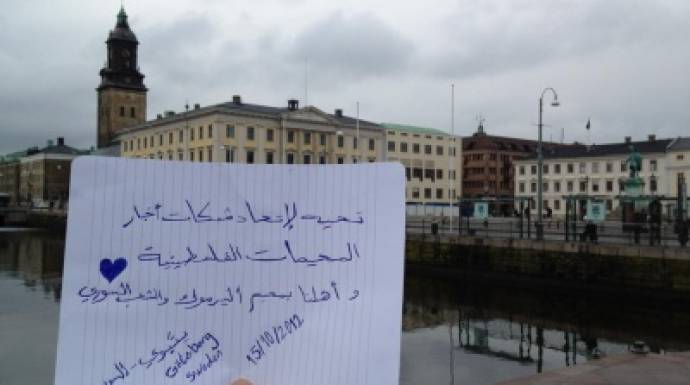 تحيه لإتحاد شبكات أخبار
المخيمات الفلسطينية
و أهلنا بمخيم أليرموك والشعب السوري
Göteborg
Sweden
15/10/2012